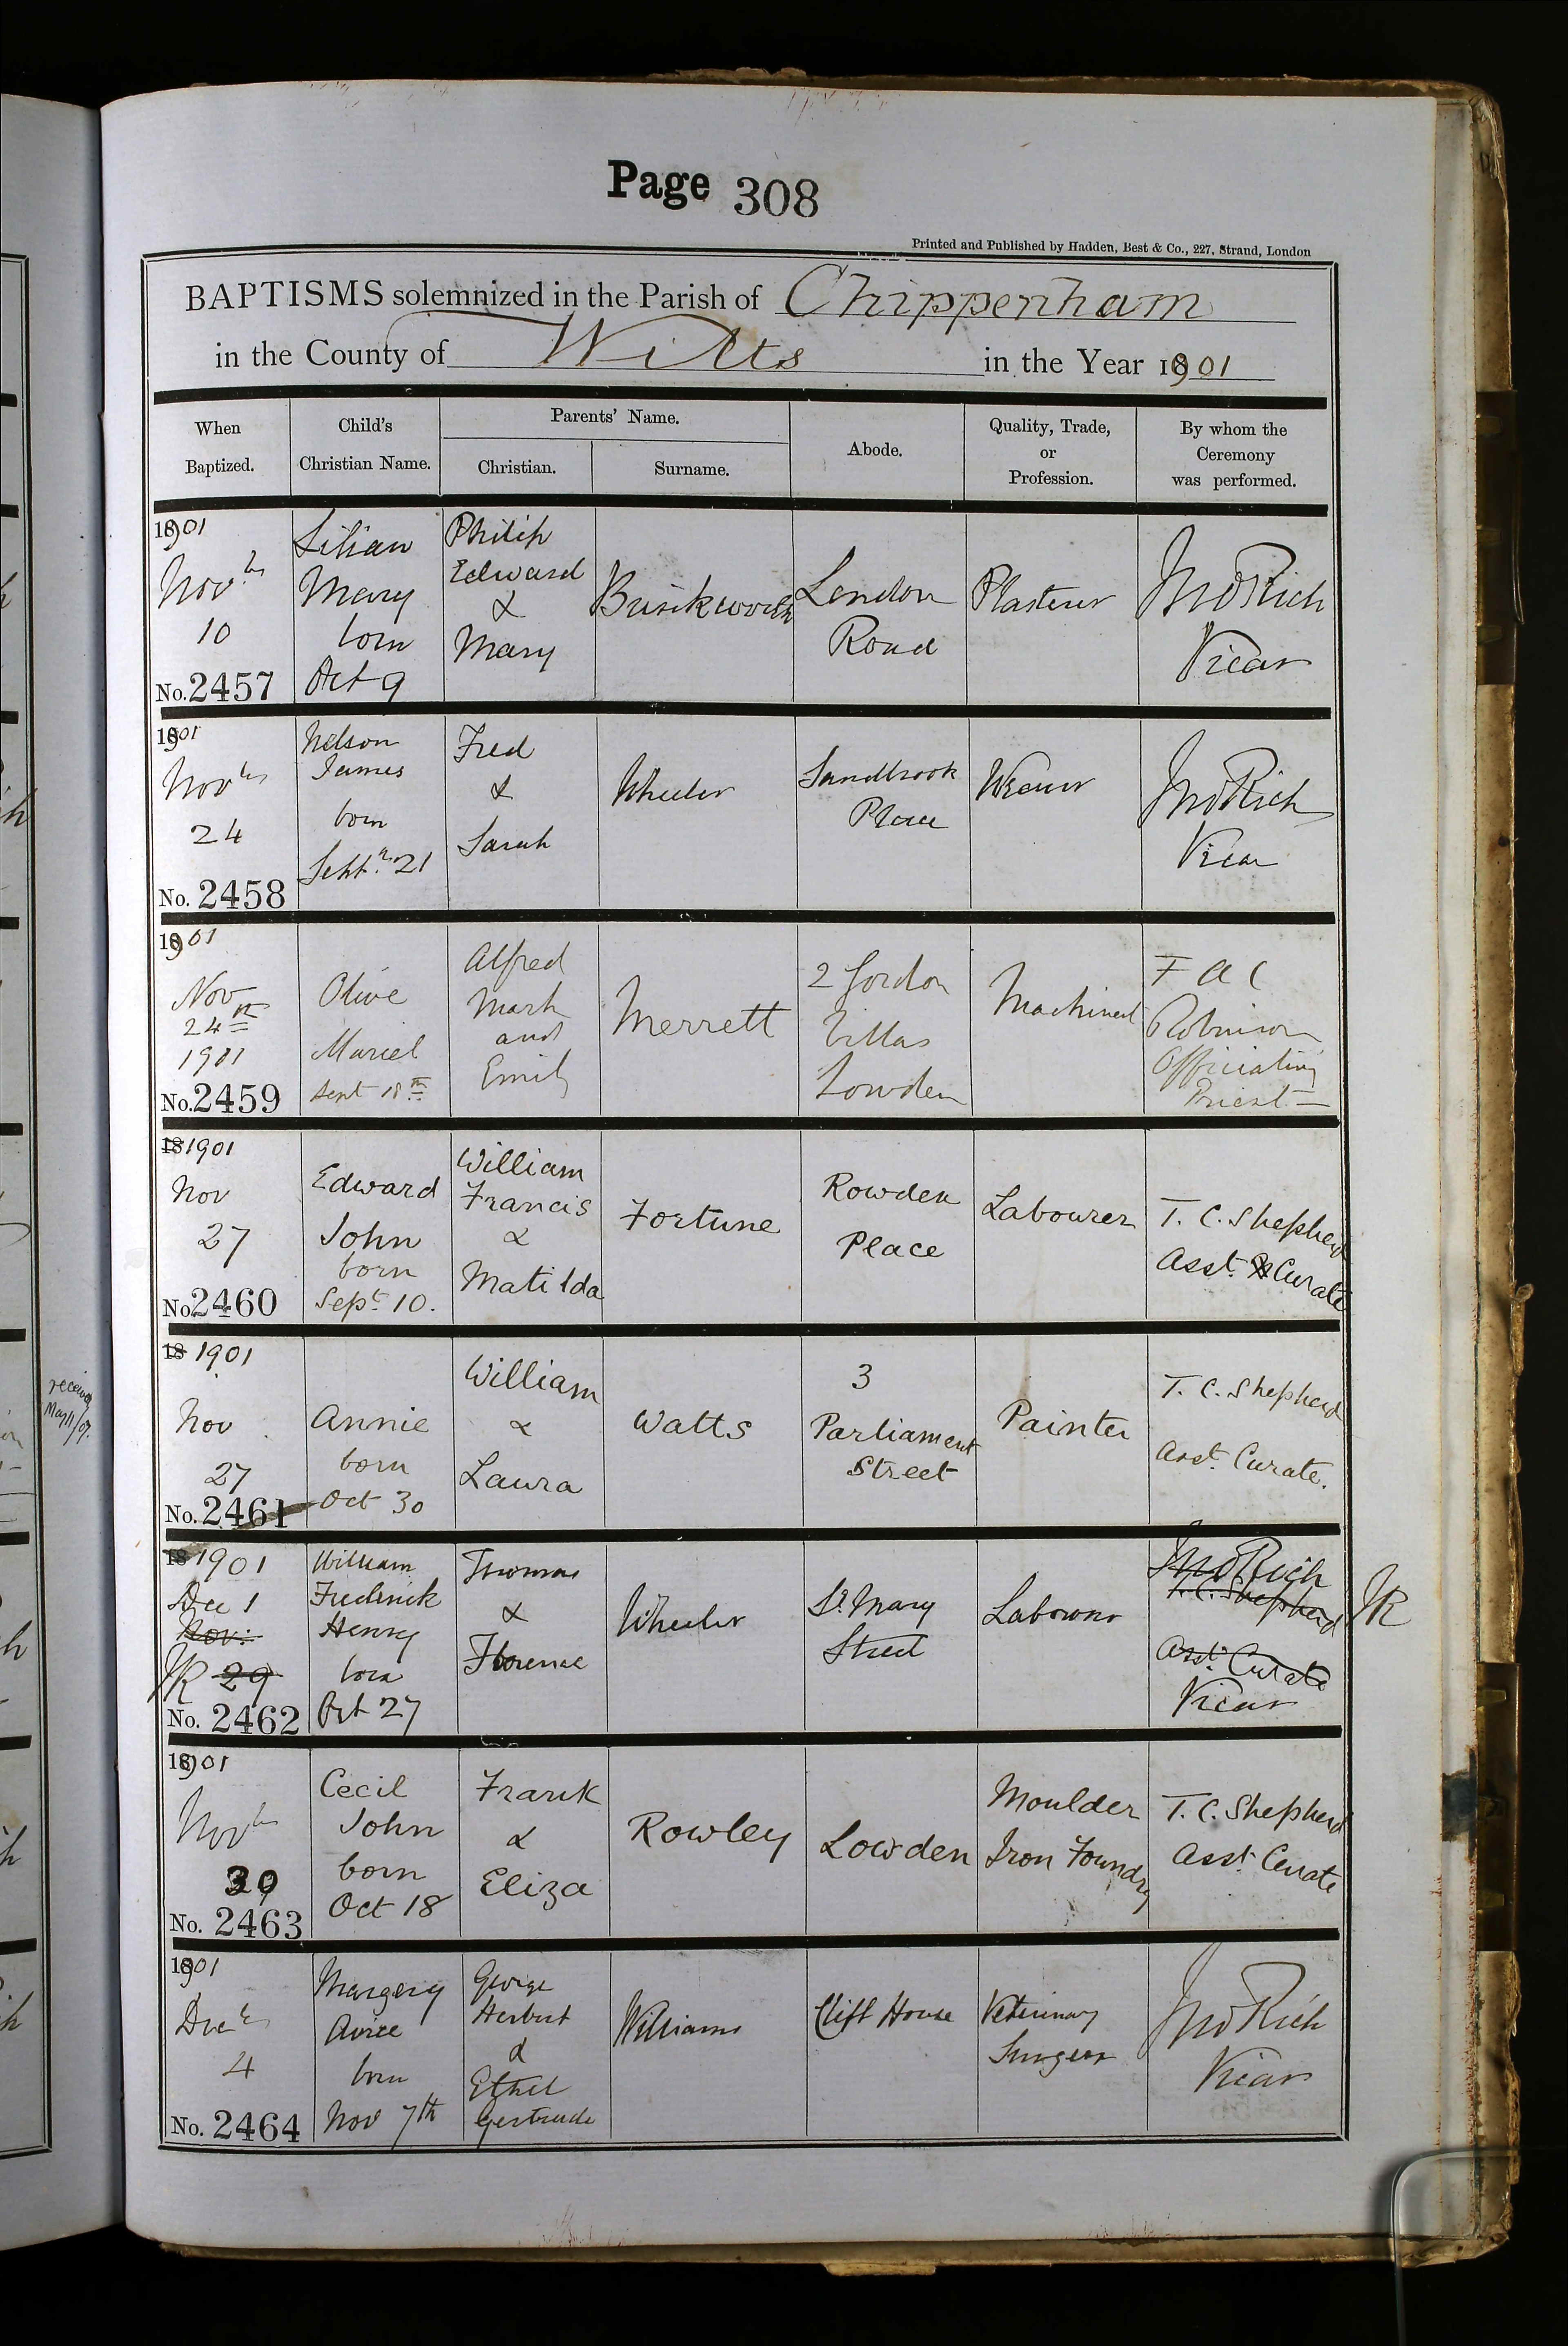 Page 308
Printed and Published by Hadden, Best & Co., 227, Strand, London
BAPTISMS solemnized in the Parish of Chippenham
in the County of Wilts in the Year 1901
When
Baptized.
Child's
Christian Name.
Parents' Name.
Christian.
Surname.
Abode.
Quality, Trade,
or
Profession.
By whom the
Ceremony
was performed.
1901
Novbr
10
No. 2457
Lilian
Mary
born
Oct 9
Philip
Edward
&
Mary
Brinkworth
London
Road
Plasterer
Jno Rich
Vicar
1901
Novbr
24
No. 2458
Nelson
James
born
Septr 21
Fred
&
Sarah
Wheeler
Sandbrook
Place
Weaver
Jno Rich
Vicar
1901
Nov
24th
1901
No. 2459
Olive
Muriel
Sept 18th
Alfred
Mark
and
Emily
Merrett
2 Gordon
Villas
Lowden
Machinist
F A C
Robinson
Officiating
Priest
18 1901
Nov
27
No 2460
Edward
John
born
Sept 10.
William
Francis
&
Matilda
Fortune
Rowden
Place
Labourer
T. C. Shepherd
Asst. Curate
18 1901
Nov
27
No. 2461
Annie
born
Oct 30
William
&
Laura
Watts
3
Parliament
Street
Painter
T. C. Shepherd
Asst. Curate.
18 1901
Dec 1
Nov:
JR 29
No. 2462
William
Frederick
Henry
born
Oct 27
Thomas
&
Florence
Wheeler
St. Mary
Street
Labourer
Jno Rich
T. C. Shepherd JR
Asst. Curate
Vicar
1901
Novbr
30
No. 2463
Cecil
John
born
Oct 18
Frank
&
Eliza
Rowley
Lowden
Moulder
Iron Foundry
T. C. Shepherd
Asst. Curate
1901
Decbr
4
No. 2464
Margery
Avice
born
Nov 7th
George
Herbert
&
Ethel
Gertrude
Williams
Clift House
Veterinary
Surgeon
Jno Rich
Vicar